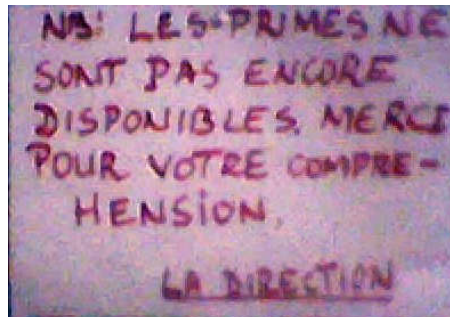 NB: LES PRIMES NE
SONT PAS ENCORE
DISPONIBLES. MERCI
POUR VOTRE COMPRE-
HENSION.
LA DIRECTION